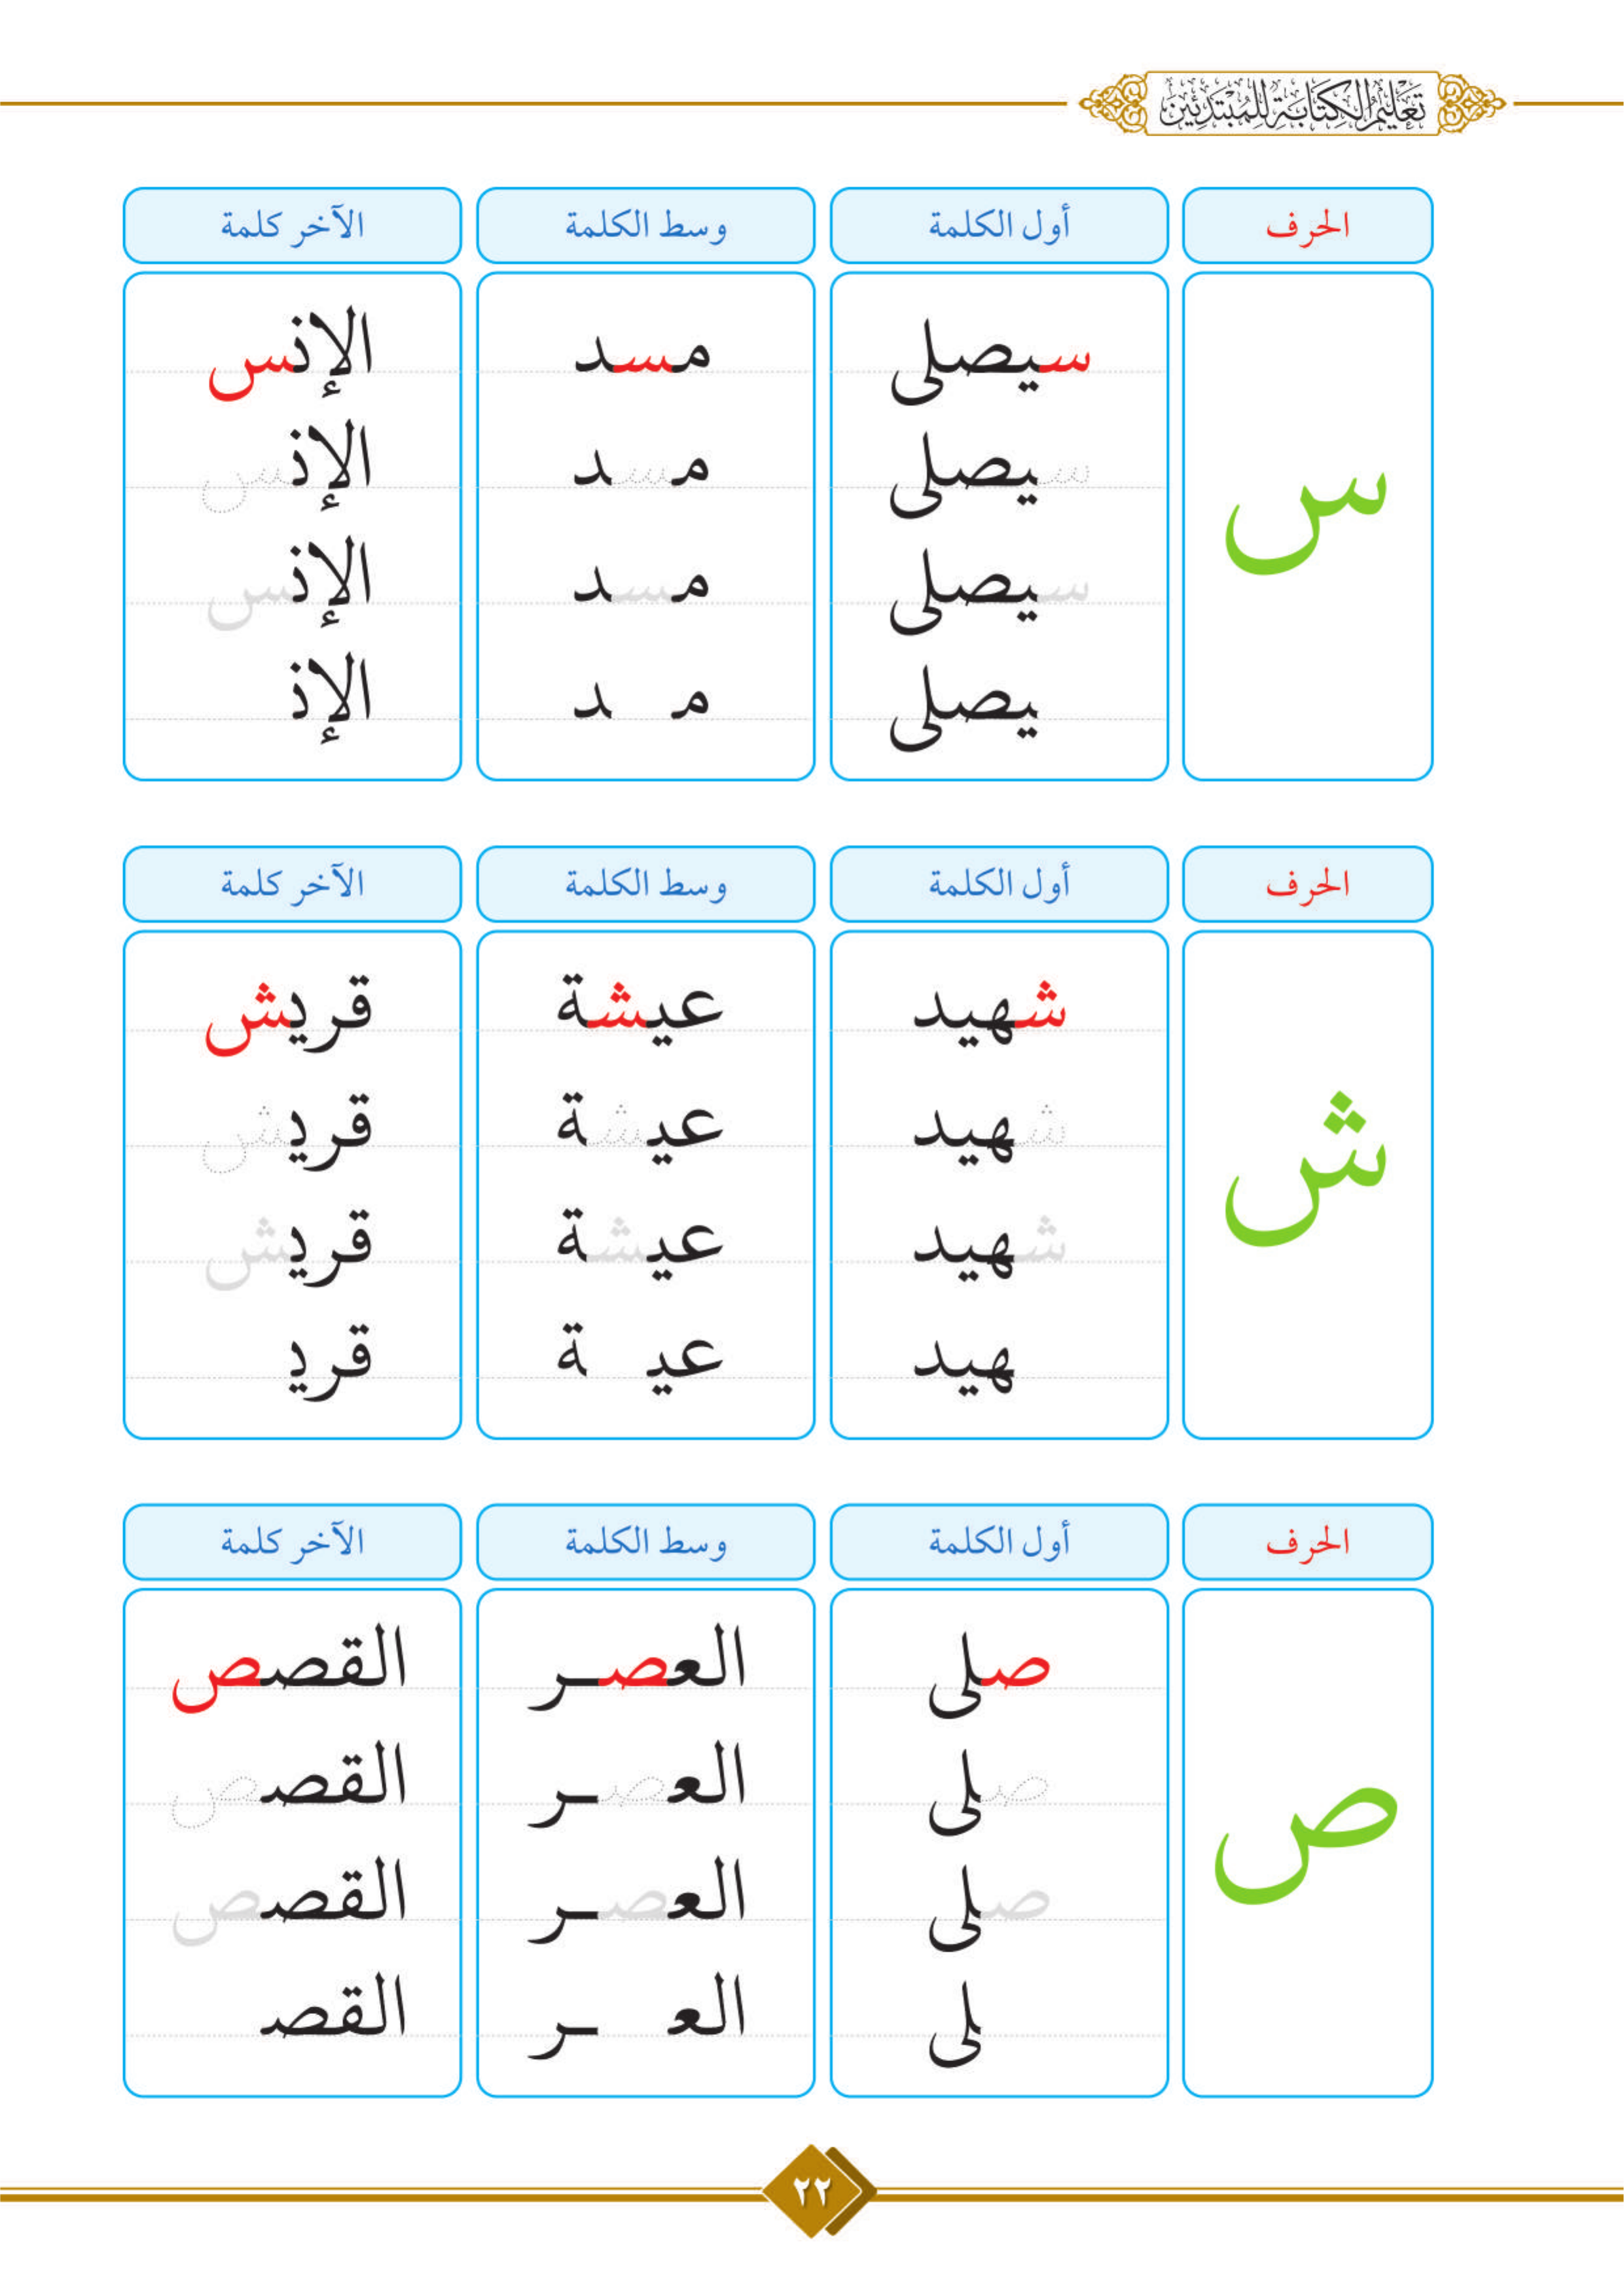 تَعْلِيمُ الْكِتَابَةِ لِلْمُبْتَدِئِينَ
الحرف أول الكلمة وسط الكلمة الآخر كلمة
س
سيصلى مسد الإنس
سيصلى مسد الإنس
سيصلى مسد الإنس
يصلى مـ ـد الإنـ
الحرف أول الكلمة وسط الكلمة الآخر كلمة
ش
شهيد عيشة قريش
شهيد عيشة قريش
شهيد عيشة قريش
ـهيد عيـ ـة قريـ
الحرف أول الكلمة وسط الكلمة الآخر كلمة
ص
صلى العصـر القصص
صلى العصـر القصص
صلى العصـر القصص
ـلى العـ ـر القصـ
٢٢